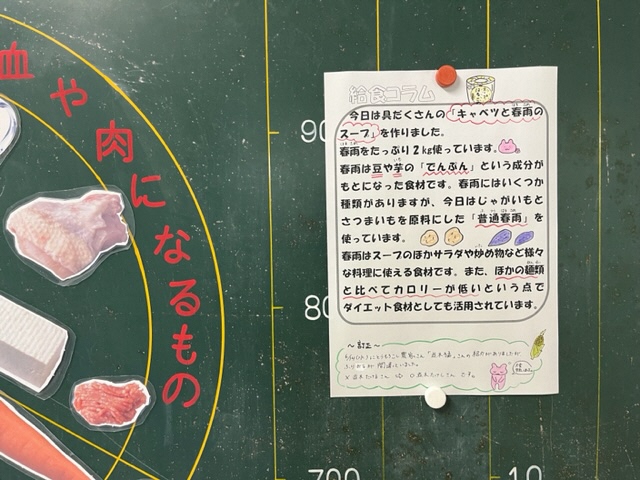 血や肉になるもの
90
80
700
10
給食コラム
今日は具だくさんの「キャベツと春雨の
スープ」を作りました。
春雨をたっぷり2kg使っています。
春雨は豆や芋の「でんぷん」という成分が
もとになった食材です。春雨にはいくつか
種類がありますが、今日はじゃがいもと
さつまいもを原料にした「普通春雨」を
使っています。
春雨はスープのほかサラダや炒め物など様々
な料理に使える食材です。また、ほかの麺類
と比べてカロリーが低いという点で
ダイエット食材としても活用されています。
~訂正~